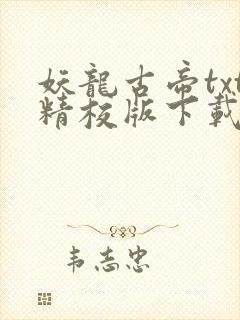 妖龍古帝txt
精校版下載
韦志忠